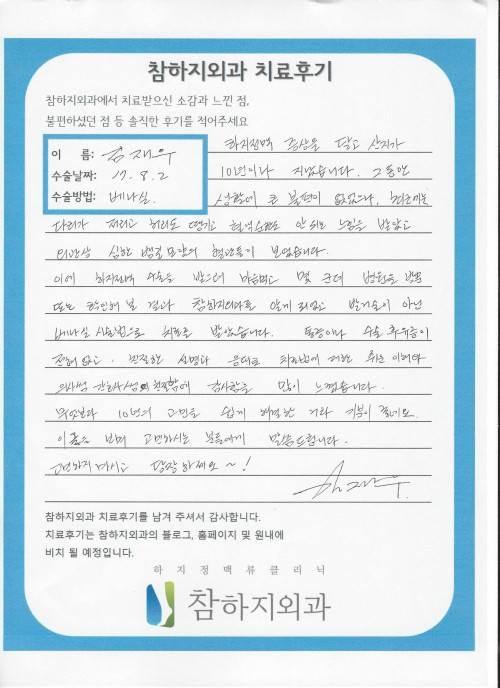 참하지외과 치료후기
참하지외과에서 치료받으신 소감과 느낀 점,
불편하셨던 점 등 솔직한 후기를 적어주세요
이 름: 김재우
수술날짜: 17. 8. 2
수술방법: 베나실.
하지정맥 증상을 달고 산지가
10년이나 지났습니다. 그동안
생활에 큰 불편이 없었으나, 최근에는
다리가 저리고 허리도 땡기고 혈액순환도 안 되는 느낌을 받았고
외관상 심한 뱀걸 모양의 혈관들이 보였습니다.
이에 하지정맥 수술을 받으려 마음먹고 몇 군데 병원을 방문
또는 확인해 본 결과 참하지외과를 알게 되었고 발거술이 아닌
베나실 시술법으로 치료를 받았습니다. 통증이나 수술 후유증이
전혀 없고, 친절한 설명과 응대로 치료법에 대한 쉬운 이해와
의사쌤 간호사쌤의 친절함에 감사함을 많이 느꼈습니다.
무엇보다 10년의 고민을 쉽게 해결한 거라 기분이 좋네요.
이 글을 보며 고민하시는 분들에게 말씀드립니다.
고민하지 마시고 당장 하세요~!
김재우.
참하지외과 치료후기를 남겨 주셔서 감사합니다.
치료후기는 참하지외과의 블로그, 홈페이지 및 원내에
비치 될 예정입니다.
하지정맥류클리닉
참하지외과